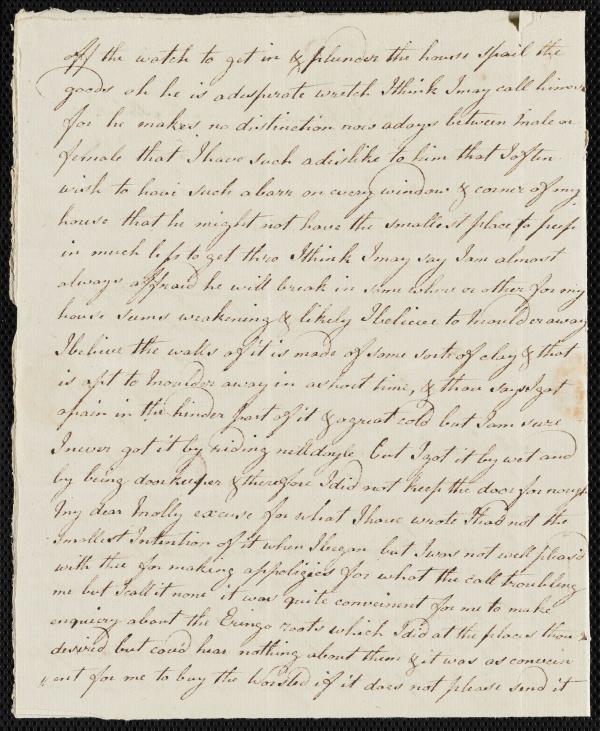 off the watch to get in & plunder the house spail the
goods oh he is a desperate wretch I think I may call him
for he makes no distinction now adays between male or
female that I have such a dislike to him that I often
wish to have such a barr on every window & corner of my
house that he might not have the smallest place to peep
in much less to get thro I think I may say I am almost
always affraid he will break in some where or other for my
house seems weakening & likely I believe to moulder away
I believe the walls of it is made of some sorte of clay & that
is apt to moulder away in a short time, & thou says I got
a pain in the hinder part of it & a great cold but I am sure
I never got it by riding but I got it by wet and
by being doorkeeper & therefore I did not keep the door for nough
My dear Molly excuse for what I have wrote I had not the
smallest Intention of it when I began but I was not well pleas'd
with thee for making appoligies for what thee call troubling
me but I call it none it was quite conveinent for me to make
enquiery about the Eringo roots which I did at the places thou
desir'd but coud hear nothing about them & it was as convein
"ent for me to buy the Worsted if it does not please send it